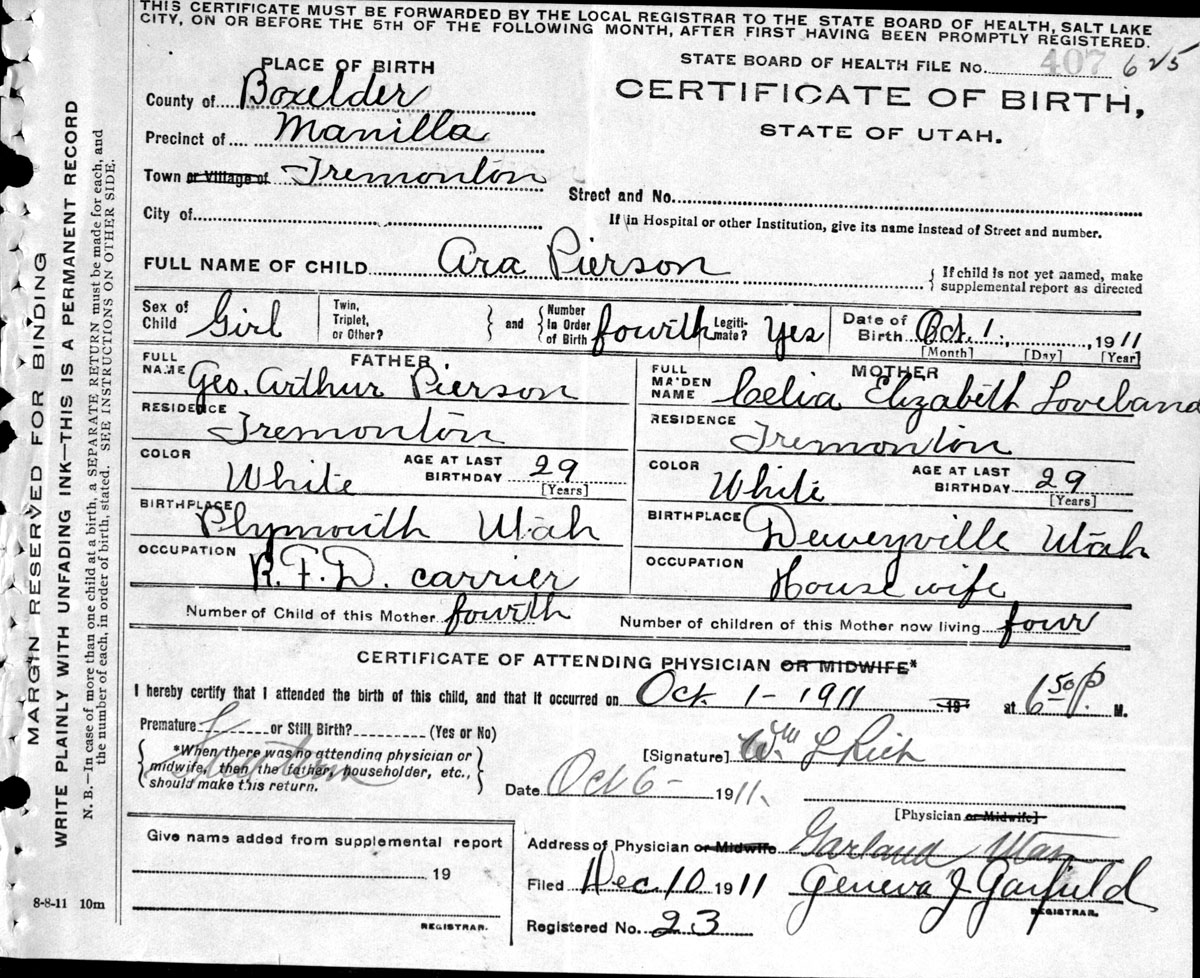 THIS CERTIFICATE MUST BE FORWARDED BY THE LOCAL REGISTRAR TO THE STATE BOARD OF HEALTH, SALT LAKE
CITY, ON OR BEFORE THE 5TH OF THE FOLLOWING MONTH, AFTER FIRST HAVING BEEN PROMPTLY REGISTERED.
STATE BOARD OF HEALTH FILE No. 407 625
CERTIFICATE OF BIRTH,
STATE OF UTAH.
PLACE OF BIRTH
County of Boxelder
Precinct of Manilla
Town or Village of Tremonton
Street and No.
City of
If in Hospital or other Institution, give its name instead of Street and number.
FULL NAME OF CHILD Ara Pierson
{If child is not yet named, make
supplemental report as directed
Sex of Child Girl Twin, Triplet, or Other? } and { Number In Order of Birth fourth Legiti-mate? Yes Date of Birth Oct. 1., 1911
[Month] [Day] [Year]
FATHER
FULL NAME Geo. Arthur Pierson
RESIDENCE Tremonton
COLOR White AGE AT LAST BIRTHDAY 29 [Years]
BIRTHPLACE Plymouth Utah
OCCUPATION R.F.D. carrier
MOTHER
FULL MAIDEN NAME Celia Elizabeth Loveland
RESIDENCE Tremonton
COLOR White AGE AT LAST BIRTHDAY 29 [Years]
BIRTHPLACE Deweyville Utah
OCCUPATION House wife
Number of Child of this Mother fourth Number of children of this Mother now living four
CERTIFICATE OF ATTENDING PHYSICIAN OR MIDWIFE*
I hereby certify that I attended the birth of this child, and that it occurred on Oct. 1 - 1911 19 at 6 50 P. M.
Premature or Still Birth? (Yes or No)
{*When there was no attending physician or
midwife, then the father, householder, etc.,
should make this return.}
[Signature] Wm L Rich
Date Oct 6 - 1911.
[Physician or Midwife]
Give name added from supplemental report
19
REGISTRAR.
Address of Physician or Midwife Garland Utah
Filed Dec. 10 1911 Geneva J Garfield
REGISTRAR.
Registered No. 23
8-8-11 10m
MARGIN RESERVED FOR BINDING
WRITE PLAINLY WITH UNFADING INK—THIS IS A PERMANENT RECORD
N. B.—In case of more than one child at a birth, a SEPARATE RETURN must be made for each, and
the number of each, in order of birth, stated. SEE INSTRUCTIONS ON OTHER SIDE.